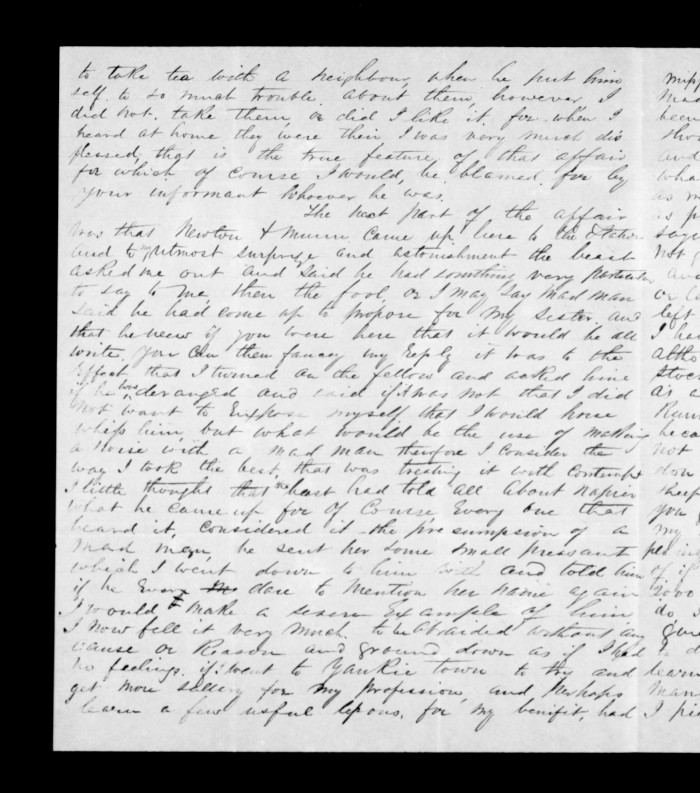 to take tea with a neighbour, when he put him
self to so much trouble about them, however, I
did not take them, or did I like it, for when I
heard at home they were their I was very much dis
pleased, that is the true feature of that affair
for which of course I would, be blamed for by
your informant whoever he was.
The next part of the affair
was that Newton & Munn came up here to the Station
and to my utmost surprise and astonishment the beast
asked me out and said he had something very particular
to say to me, then the fool, or I may say mad man
said he had come up to propose for my sister and
that he knew if you were here that it would be all
write. you can then fancy my reply it was to the
Effect that I turned on the fellow and asked him
if he was deranged and said if it was not that I did
not want to Expose myself, that I would horse
whip him, but what would be the use of making
a noise with a mad man therefore I consider the
way I took the best, that was treating it with contempt
I little thought that the beast had told all about Napier
what he came up for of Course Every one that
heard it, considered it the presumpsion of a
mad man, he sent her some small pressant
which I went down to him with and told him
if he Ever dare to mention her name again
I would make a severe Example of him
I now fell it very much, to be abraided without any
cause or Reason and ground down as if I had
no feelings, if I went to Yankie town to try and
get more sallery for my profession, and perhaps
learn a few usful lesons, for my benifit, had
been
and
wha
as m
as p
saye
not
or
left
I hea
as a
not
don
you
my
of if
2000
do
learn
man